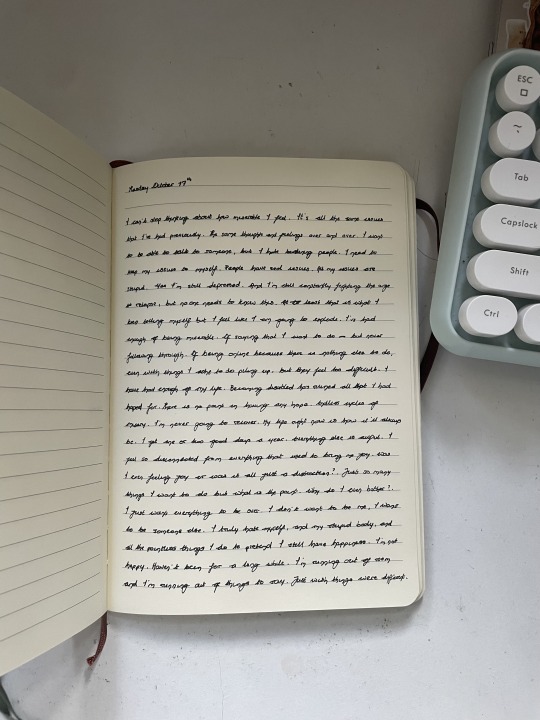 Tuesday October 17th
I can't stop thinking about how miserable I feel. It's all the same issues
that I've had previously. The same thoughts and feelings over and over. I want
to be able to talk to someone, but I hate bothering people. I need to
keep my issues to myself. People have real issues. All my issues are
stupid. Yes I'm still depressed. And I'm still constantly fighting the urge
to relapse, but no one needs to know this. At least that is what I
keep telling myself but I feel like I am going to explode. I've had
enough of being miserable. Of saying that I want to do — but never
following through. Of being online because there is nothing else to do,
even with things I wish to do piling up. But they feel too difficult. I
have had enough of my life. Becoming disabled has ruined all that I had
hoped for. There is no point in having any hope. Endless cycles of
misery. I'm never going to recover. My life right now is how it'll always
be. I get one or two good days a year. Everything else is awful. I
feel so disconnected from everything that used to bring me joy. Was
I ever feeling joy or was it all just a distraction? Just so many
things I want to do but what is the point. Why do I even bother?
I just want everything to be over. I don't want to be me, I want
to be someone else. I truly hate myself, and my stupid body, and
all the pointless things I do to pretend I still have happiness. I'm not
happy. Haven't been for a long while. I'm running out of room
and I'm running out of things to say. Just wish things were different.
ESC
Tab
Capslock
Shift
Ctrl